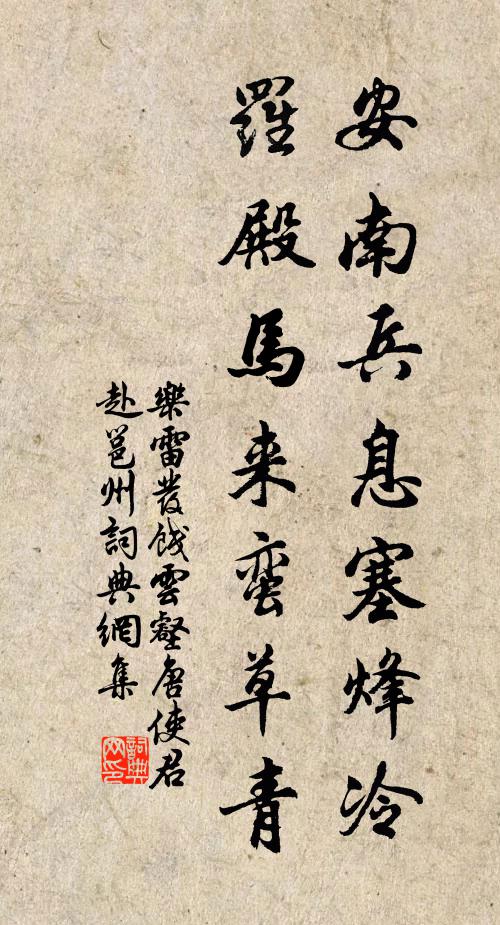 安南兵息塞烽冷
羅殿馬来蛮草青
樂雷發餞雲壑唐使君
赴邕州詞典網集
詞典
网印